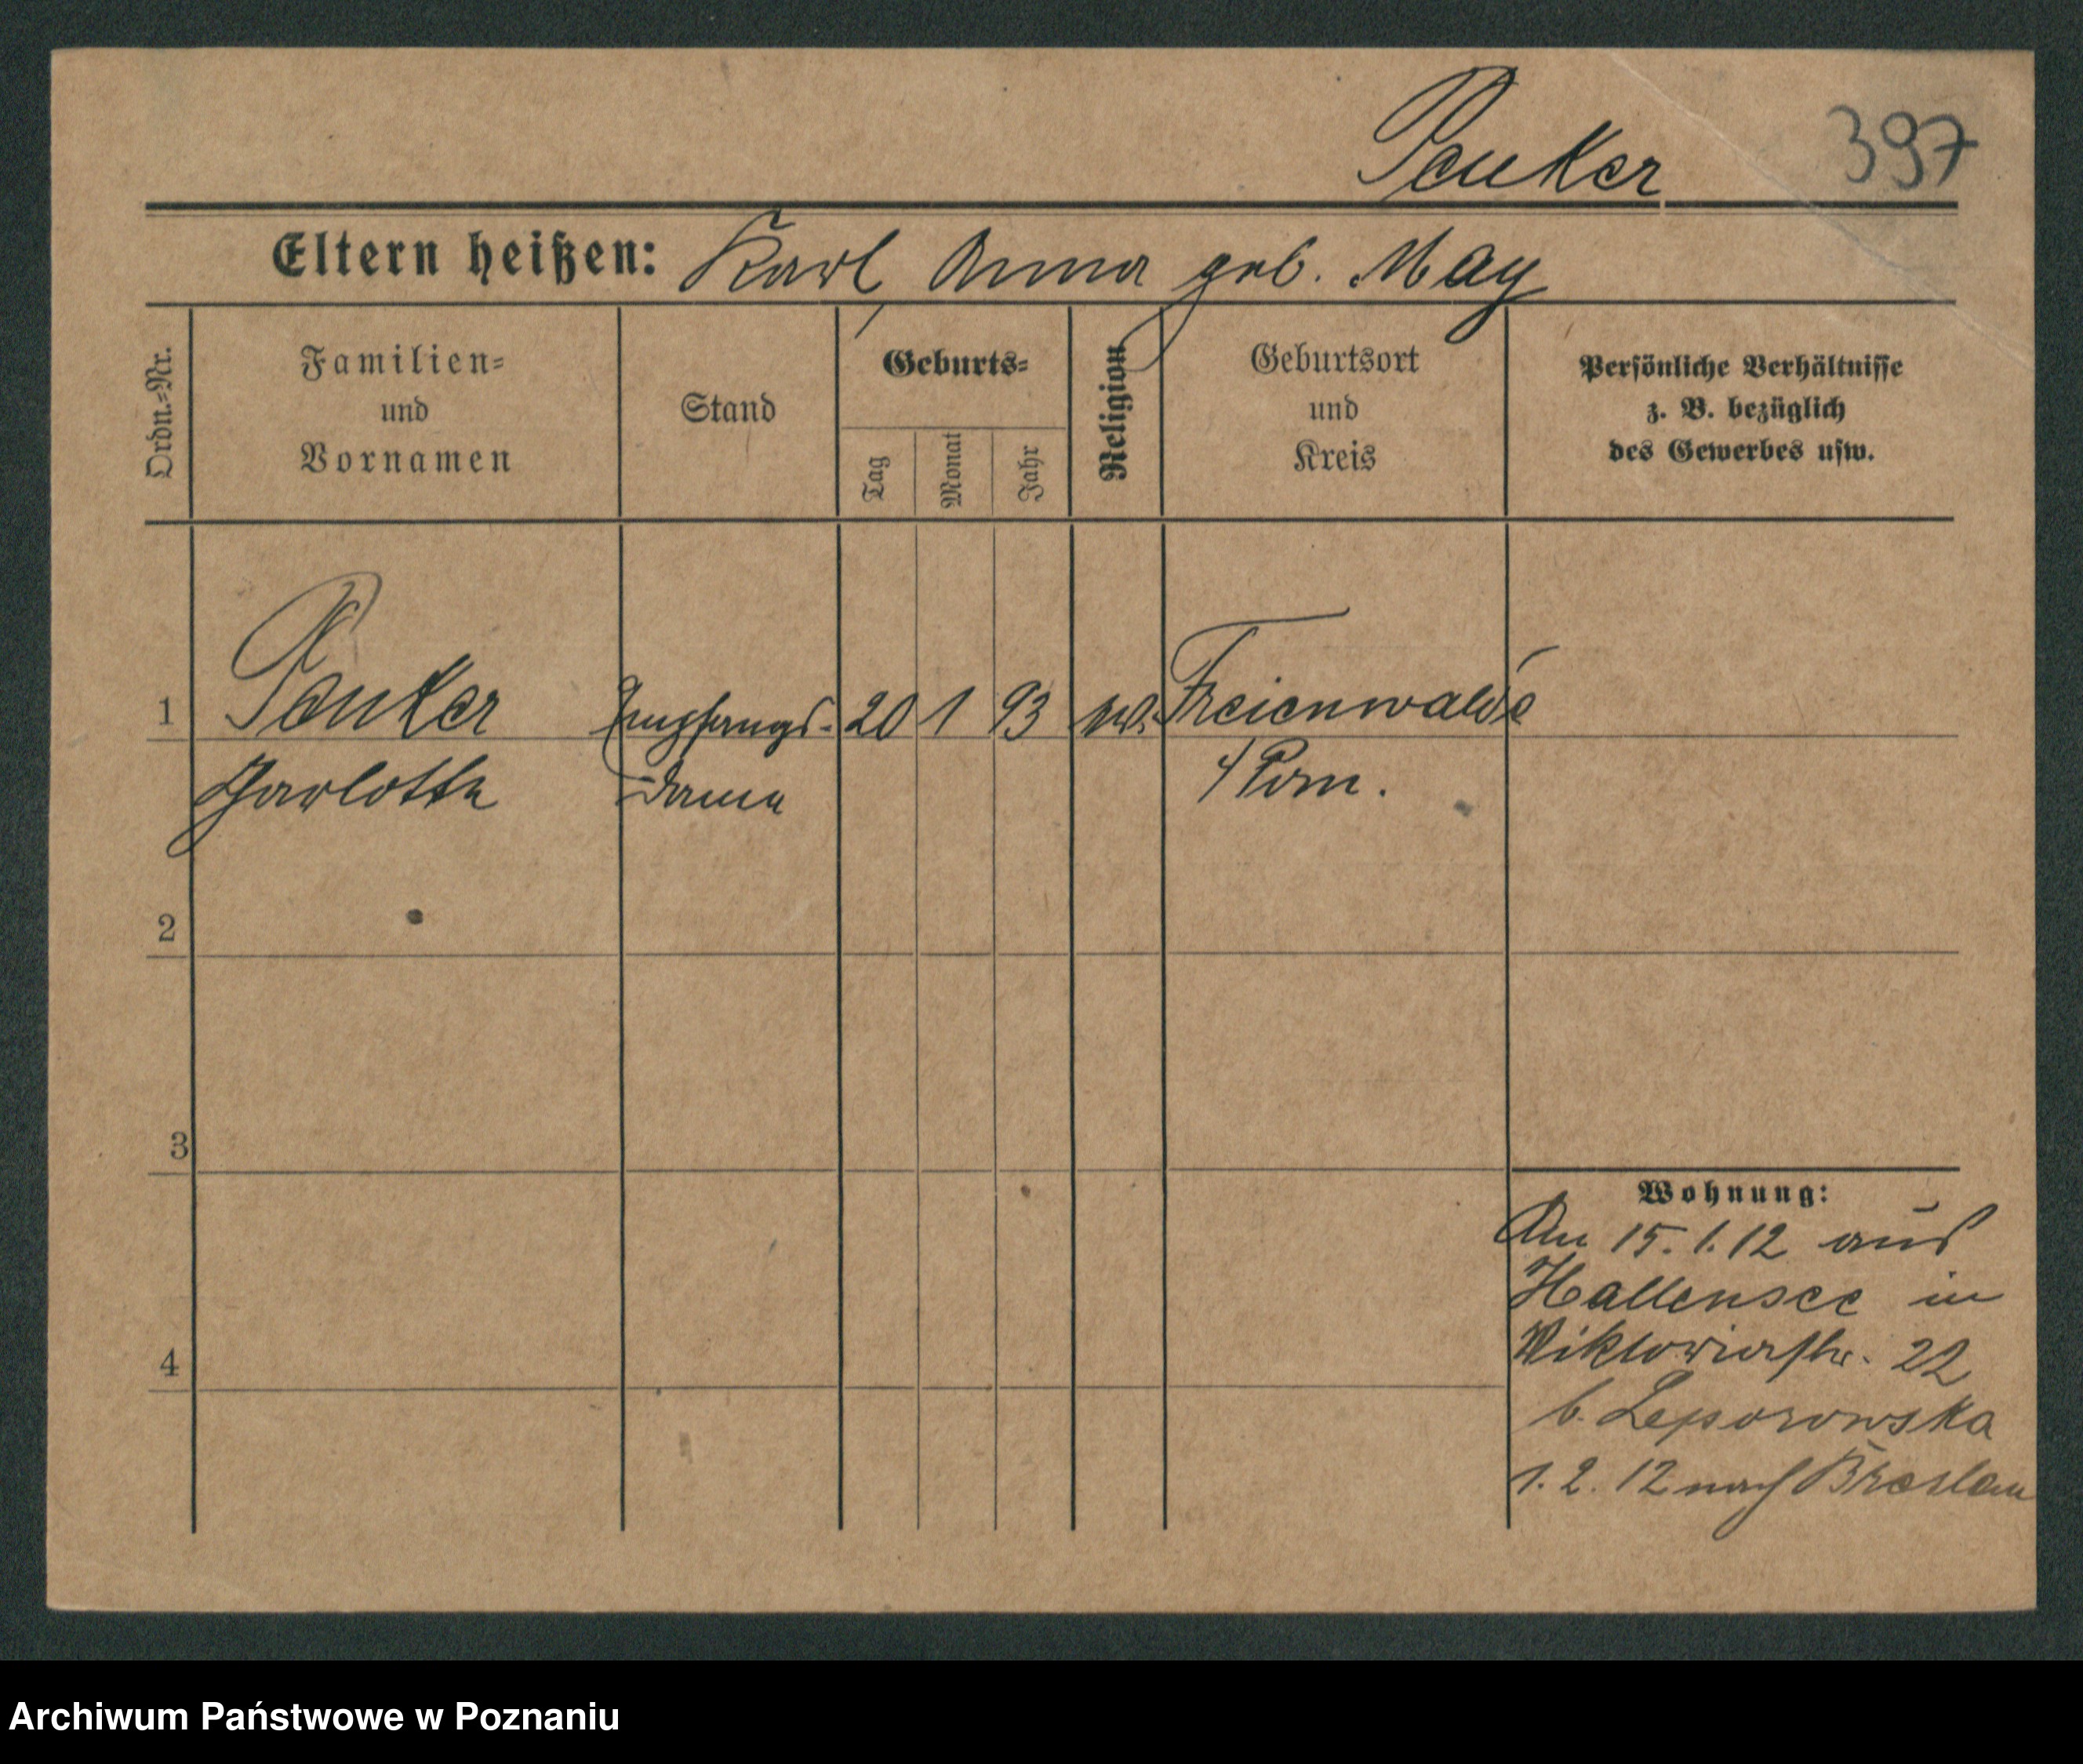 Peuker 397
Eltern heißen: Karl, Anna geb. May
Ordn.-Nr.
Familien-
und
Vornamen
Stand
Geburts-
Tag
Monat
Jahr
Religion
Geburtsort
und
Kreis
Persönliche Verhältnisse
z. B. bezüglich
des Gewerbes usw.
1 Peuker Empfangs- 20 1 93 ev. Freienwalde
Charlotte Dame Pom.
2
3
4
Wohnung:
Am 15.1.12 aus
Hallensee in
Viktoriastr. 22
b. Leporowska
1.2.12 nach Breslau
Archiwum Państwowe w Poznaniu